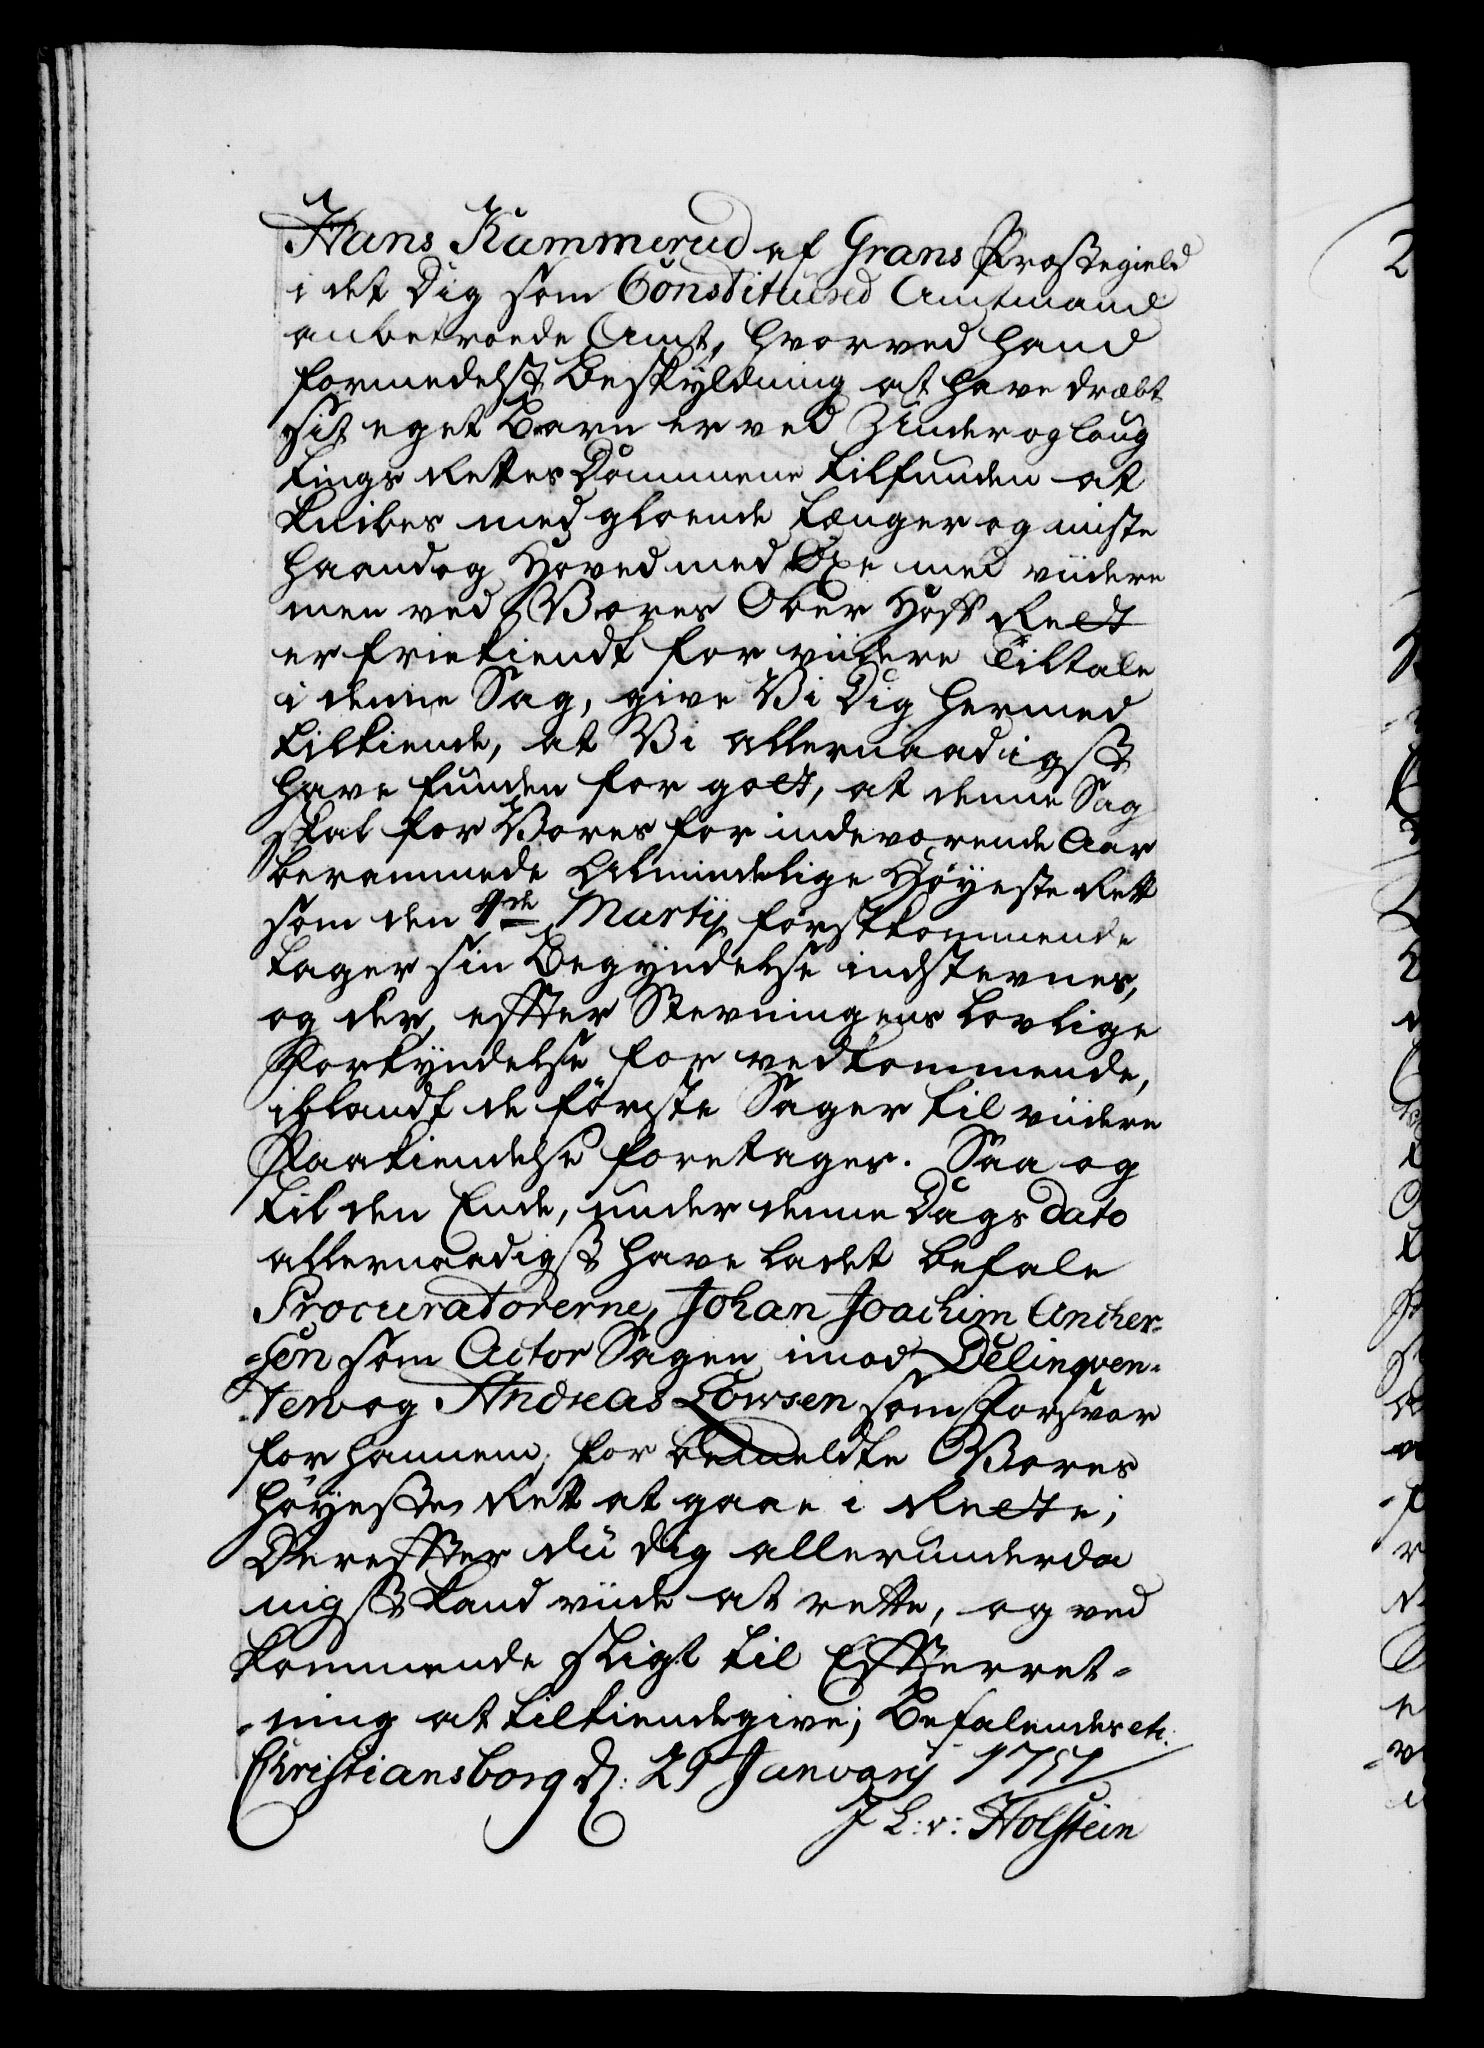 Hans Kammerud af Grans Præstegield
i det Dig som Constituered Amtmand
anbetroede Amt, hvorved hand
formedelst Beskyldning at have dræbt
sit eget Barn er ved Under og laug
tings Rettes Dommene tilfunden at
knibes med gloende Tænger og miste
Haand og Hoved med Øxe med viidere
men ved Vores Ober Hoff Rett
er friekiendt for viidere Tiltale
i denne Sag, give Vi Dig hermed
tilkiende, at Vi allernaadigst
have funden for godt, at denne Sag
skal for Vores for indeværende Aar
berammede Almindelige Høyeste Rett
som den 4de Martij førstkommende
tager sin Begyndelse indstevnes,
og der, effter Stevningens lovlige
Forkyndelse for vedkommende,
iblandt de første Sager til viidere
Paakiendelse foretages. Saa og
til den Ende, under denne Dags dato
allernaadigst have ladet befale
Procuratorerne, Johan Joachim Ancher-
-sen som Actor Sagen imod Delinqven-
-ten og Andreas Lowsen som Forsvar
for hannem, for bemeldte Vores
Høyeste Rett at gaae i Rette;
Dereffter du dig allerunderda
nigst kand viide at rette, og ved
kommende sligt til Effterret-
-ning at tilkiendegive; Befalendes etc.
Christiansborg d: 29 Januarij 1751
J L: v: Holstein